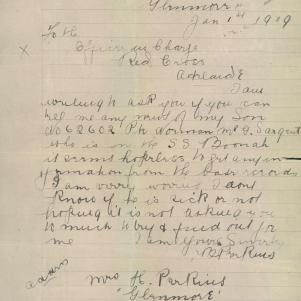 Glenmore
Jan 1st 1919
To the
Officer in Charge
Red Cross
Adelaide
I am
writing to ask you if you can
tell me any news of my Son
No 62602 Pte Norman Mc G. Sargent
who is on the S.S. Boonah
it seems hopeless to get any in
formation from the base records
I am verry worried I dont
know if he is sick or not
hoping it is not asking you
to much to try & find out for
me I am yours Sincerly
H Perkins
Mrs H. Perkins
"Glenmore"